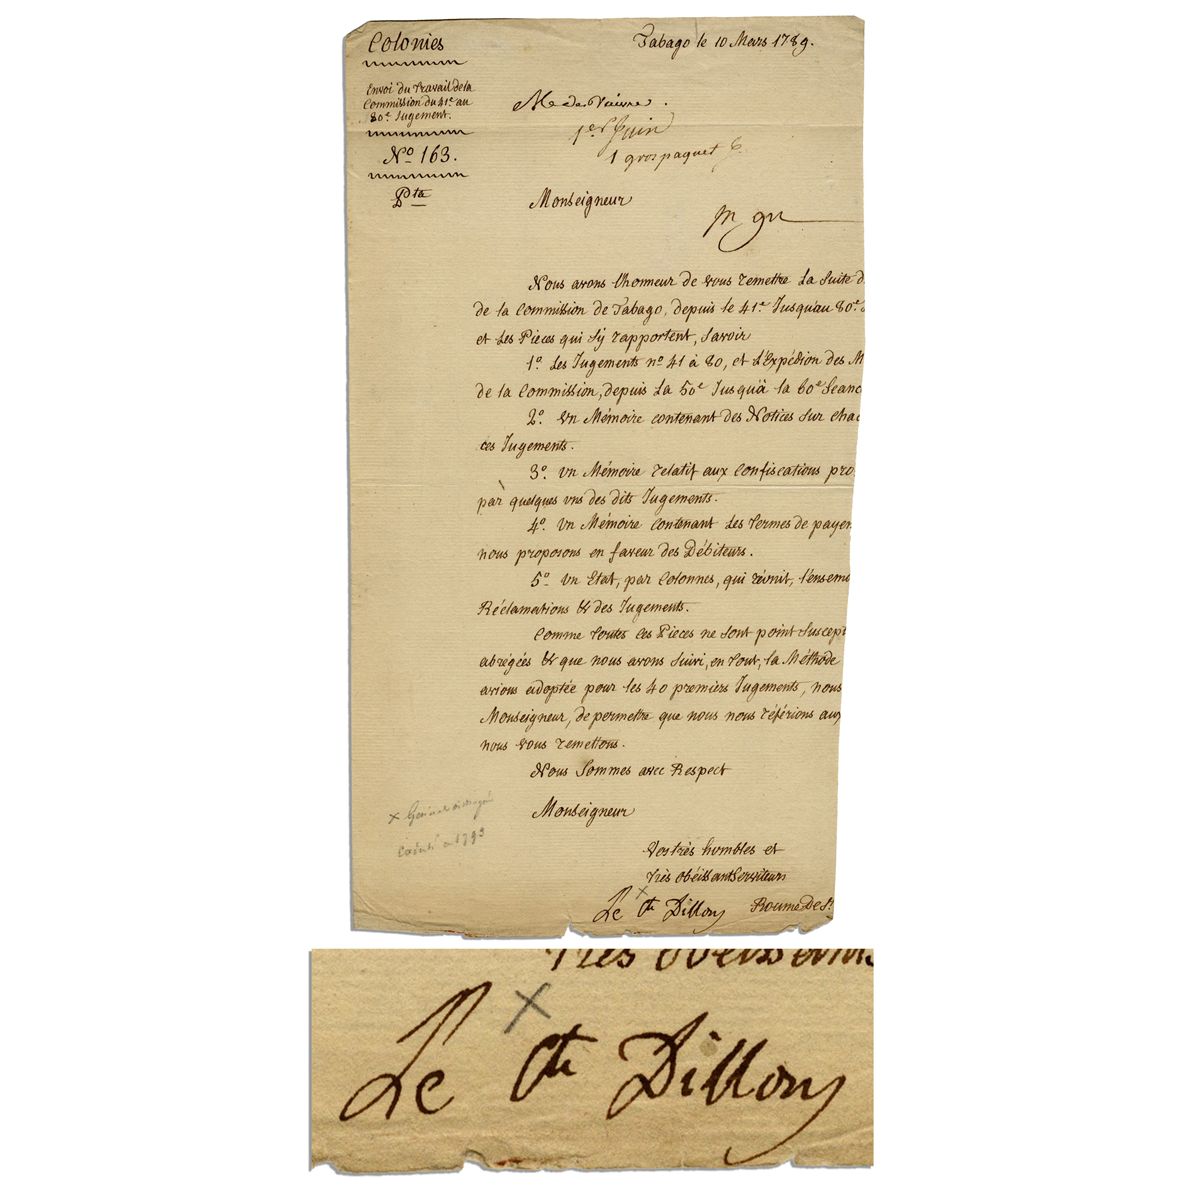 Colonies
Tabago le 10 Mars 1789.
Envoi du Travail de la
Commission du 41e au
80e Jugement.
No 163.
Pta
M. de Vaivre.
1er Juin
1 gros paquet
Monseigneur
Nous avons l'honneur de vous remettre La Suite d
de la Commission de Tabago, depuis le 41e Jusqu'au 80e
et Les Pièces qui s'y rapportent, Savoir
1o Les Jugements no 41 à 80, et L'Expédion des M
de la Commission, depuis La 50e Jusqu'à la 60e Séanc
2o Un Mémoire contenant des Notices Sur chac
ces Jugements.
3o Un Mémoire relatif aux Confiscations pro
par quelques uns des dits Jugements.
4o Un Mémoire contenant Les Termes de payem
nous proposons en faveur des Débiteurs.
5o Un Etat, par Colonnes, qui réunit, l'ensem
Réclamations & des Jugements.
Comme Toutes ces Pieces ne sont point Suscept
abrégées & que nous avons Suivi, en Tout, la Méthode
avions adoptée pour les 40 premiers Jugements, nous
Monseigneur, de permettre que nous nous référions aux
nous vous remettons.
Nous Sommes avec Respect
Monseigneur
x
1793
Vos très humbles et
très obéissant Serviteurs
x
Le Cte Dillon Roume De St
très obéissants
x
Le Cte Dillon